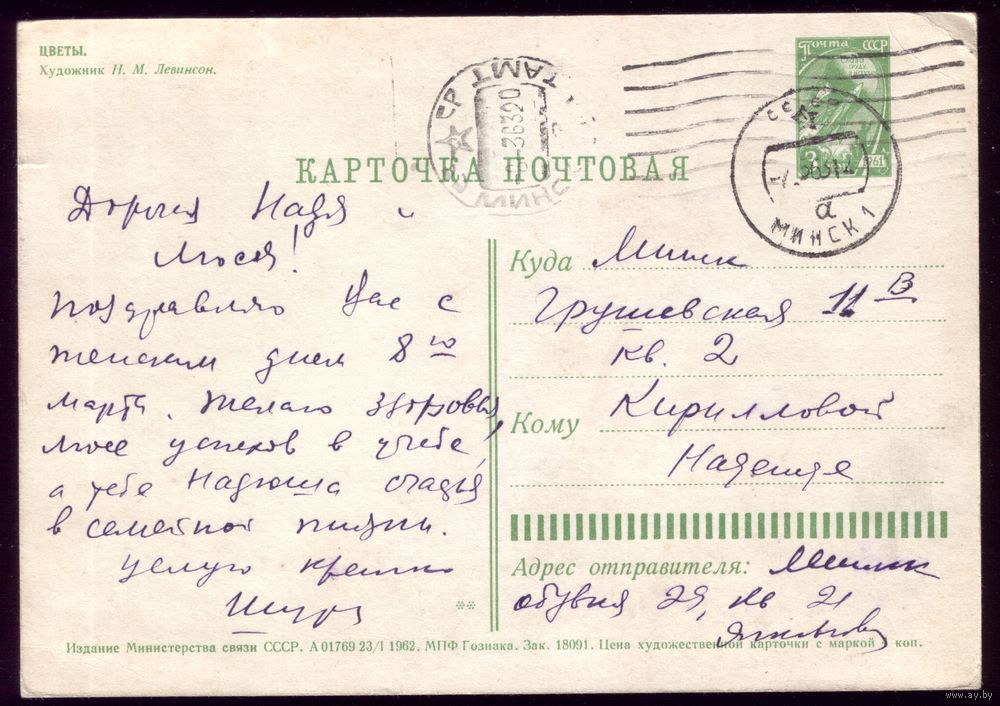 ЦВЕТЫ.
Художник Н. М. Левинсон.
Почта СССР
КАРТОЧКА ПОЧТОВАЯ
МИНСК 1
Дорогая Надя и
Люся!
Поздравляю Вас с
женским днем 8го
марта. Желаю здоровья,
Люсе успехов в учебе,
а тебе Надюша счастья
в семейной жизни.
Целую крепко
Шура
Куда Минск
Грушевская 11 В
кв. 2
Кому Кирилловой
Надежде
Адрес отправителя: Минск
обувная 29, кв 21
Издание Министерства связи СССР. А 01769 23/I 1962. МПФ Гознака. Зак. 18091. Цена художественной карточки с маркой коп.
www.ay.by